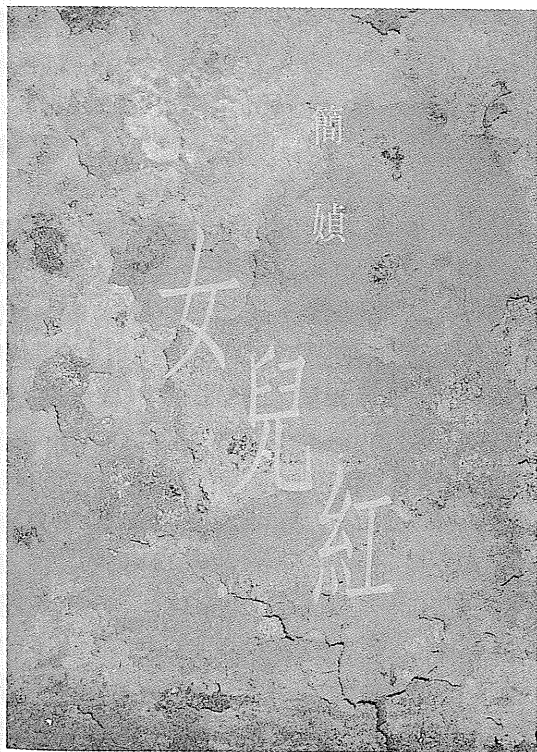 簡媜
女兒紅